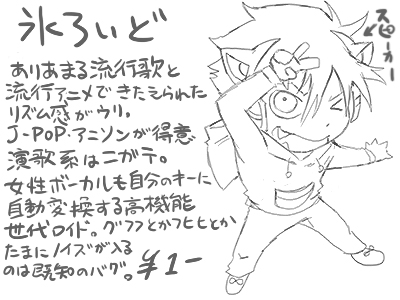 氷ろいど
スピーカー
ありあまる流行歌と
流行アニメできたえられた
リズム感がウリ。
J-POP・アニソンが得意
演歌系はニガテ。
女性ボーカルも自分のキーに
自動変換する高機能
世代ロイド。グフフとかフヒヒとか
たまにノイズが入る
のは既知のバグ。¥1-